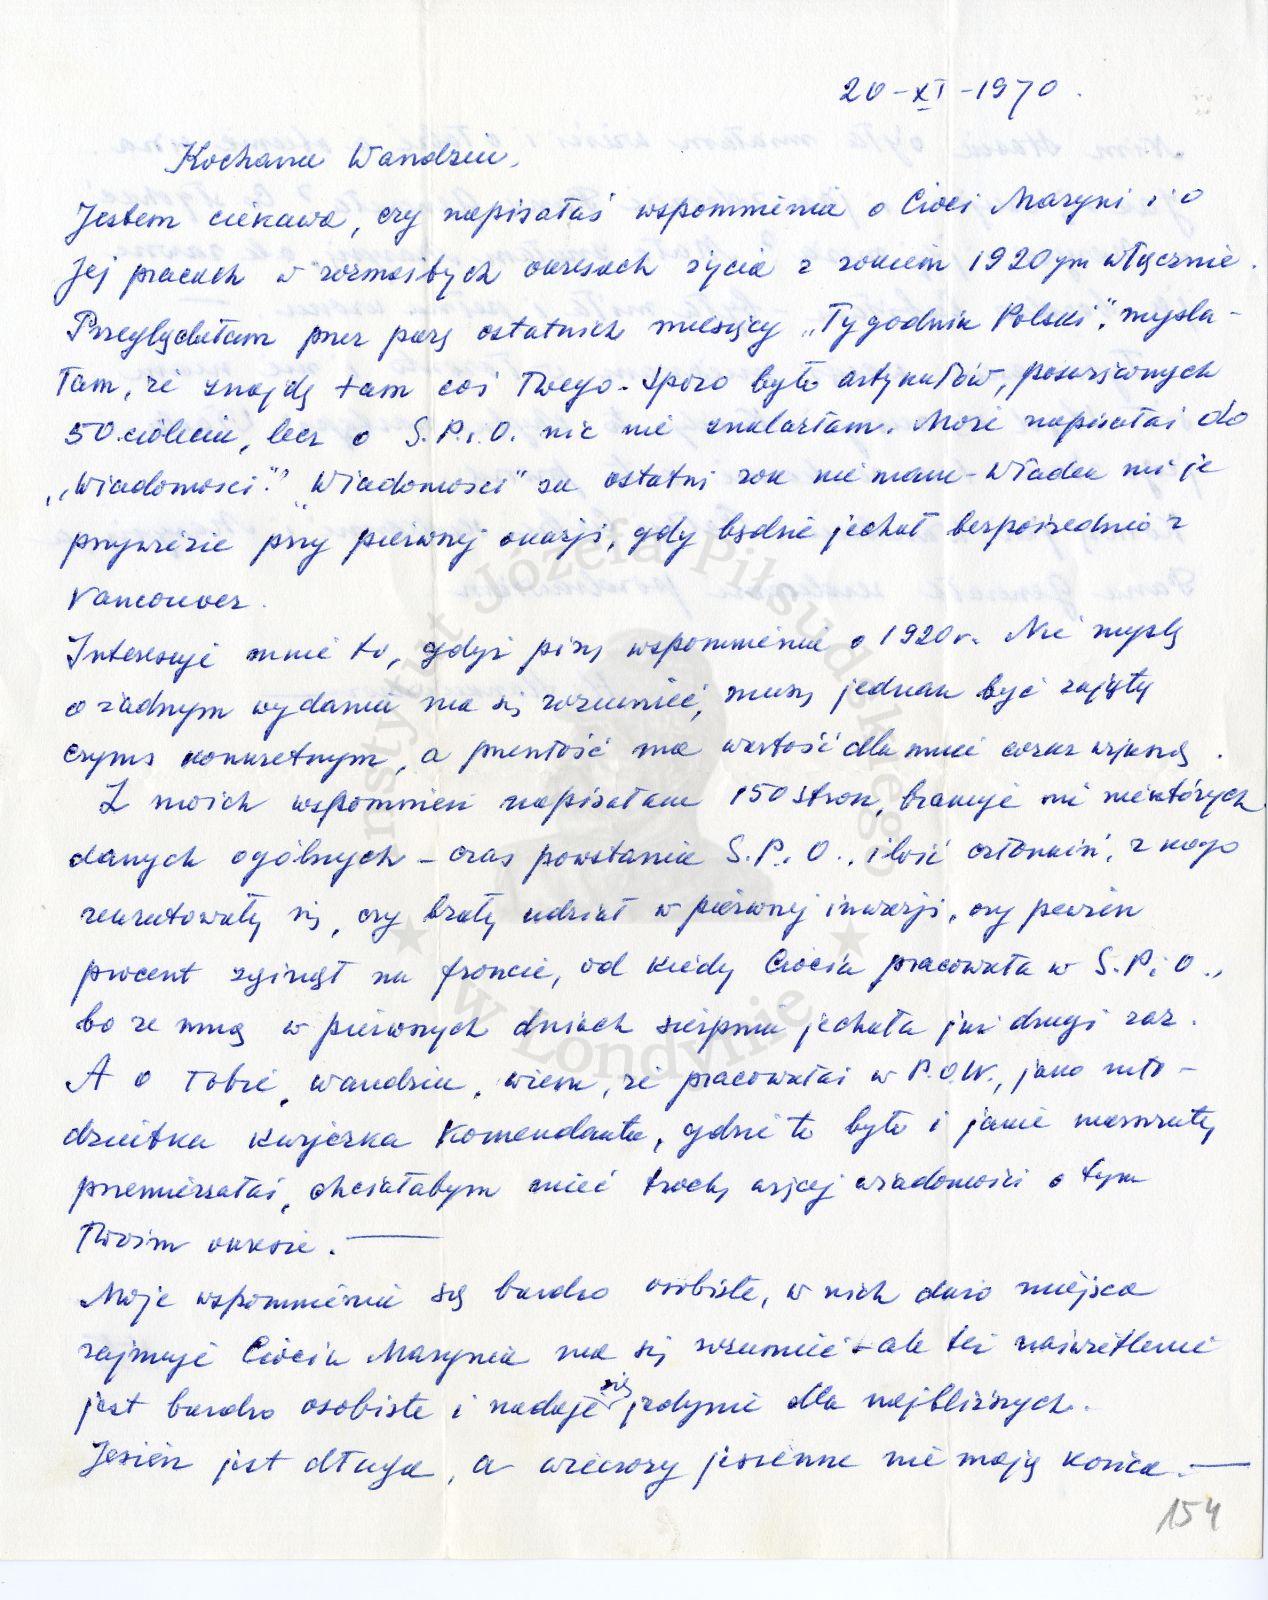 20-XI-1970.
Kochana Wandziu,
Jestem ciekawa, czy napisałaś wspomnienia o Cioci Maryni i o
Jej pracach w rozmaitych okresach życia z rokiem 1920ym włącznie.
Przeglądałam przez parę ostatnich miesięcy „Tygodnik Polski", myśla-
łam, że znajdę tam coś Twego. Sporo było artykułów, poświęconych
50-cioleciu, lecz o S.P.i.O. nic nie znalazłam. Może napisałaś do
„Wiadomości"? „Wiadomości" za ostatni rok nie mam - Władek mi je
przywiezie przy pierwszej okazji, gdy będzie jechał bezpośrednio z
Vancouver.
Interesuje mnie to, gdyż piszę wspomnienia o 1920r. Nie myślę
o żadnym wydaniu ma się rozumieć, muszę jednak być zajęty
czyms konkretnym, a przeszłość ma wartość dla mnie coraz większą.
Z moich wspomnień napisałam 150 stron, brakuje mi niektórych
danych ogólnych - czas powstania S.P.i.O., ilość członkiń, z kogo
rekrutowały się, czy brały udział w pierwszej inwazji, czy pewien
procent zginął na froncie, od kiedy Ciocia pracowała w S.P.i.O.,
bo ze mną w pierwszych dniach sierpnia jechała już drugi raz.
A o Tobie, Wandziu, wiem, że pracowałaś w P.O.W., jako mło-
dziutka kurjerka Komendanta, gdzie to było i jakie marszruty
przemierzałaś, chciałabym mieć trochę więcej wiadomości o tym
Twoim okresie. —
Moje wspomnienia są bardzo osobiste, w nich dużo miejsca
zajmuje Ciocia Marynia ma się rozumieć - ale też naświetlenie
jest bardzo osobiste i nadaje się jedynie dla najbliższych.
Jesień jest długa, a wieczory jesienne nie mają końca. —
154
Instytut Józefa Piłsudskiego
w Londynie